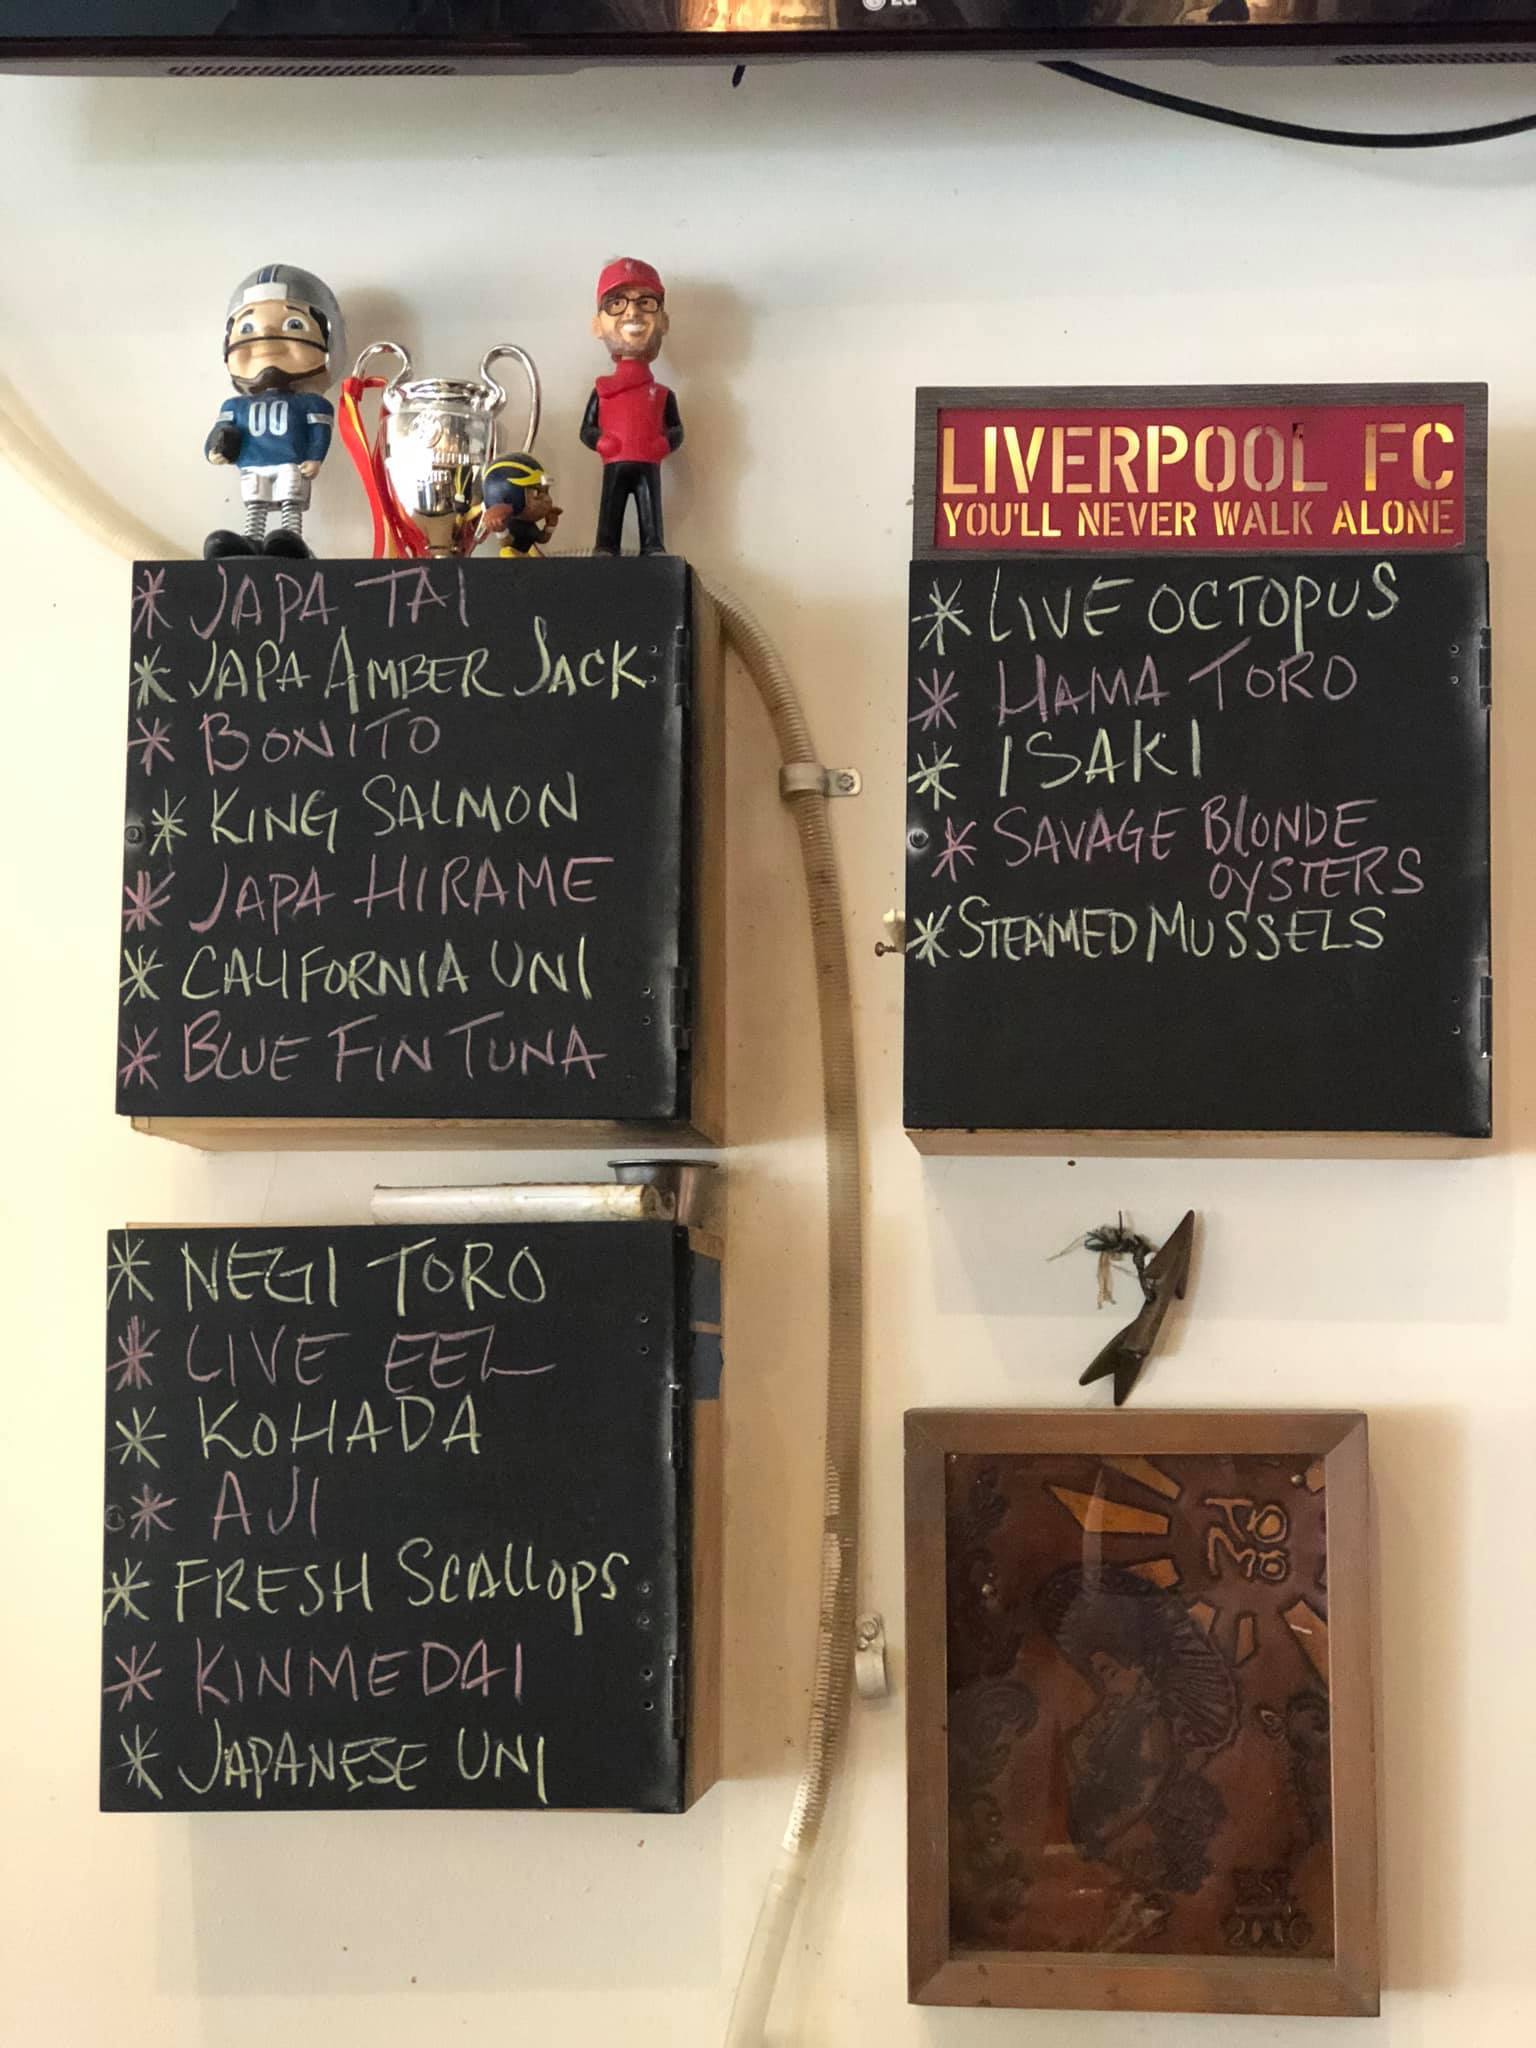 LG
00
LIVERPOOL FC
YOU'LL NEVER WALK ALONE
* JAPA TAI
* JAPA AMBER JACK
* BONITO
* KING SALMON
* JAPA HIRAME
* CALIFORNIA UNI
* BLUE FIN TUNA
* LIVE OCTOPUS
* HAMA TORO
* ISAKI
* SAVAGE BLONDE
OYSTERS
* STEAMED MUSSELS
* NEGI TORO
* LIVE EEL
* KOHADA
* AJI
* FRESH SCALLOPS
* KINMEDAI
* JAPANESE UNI
EST.